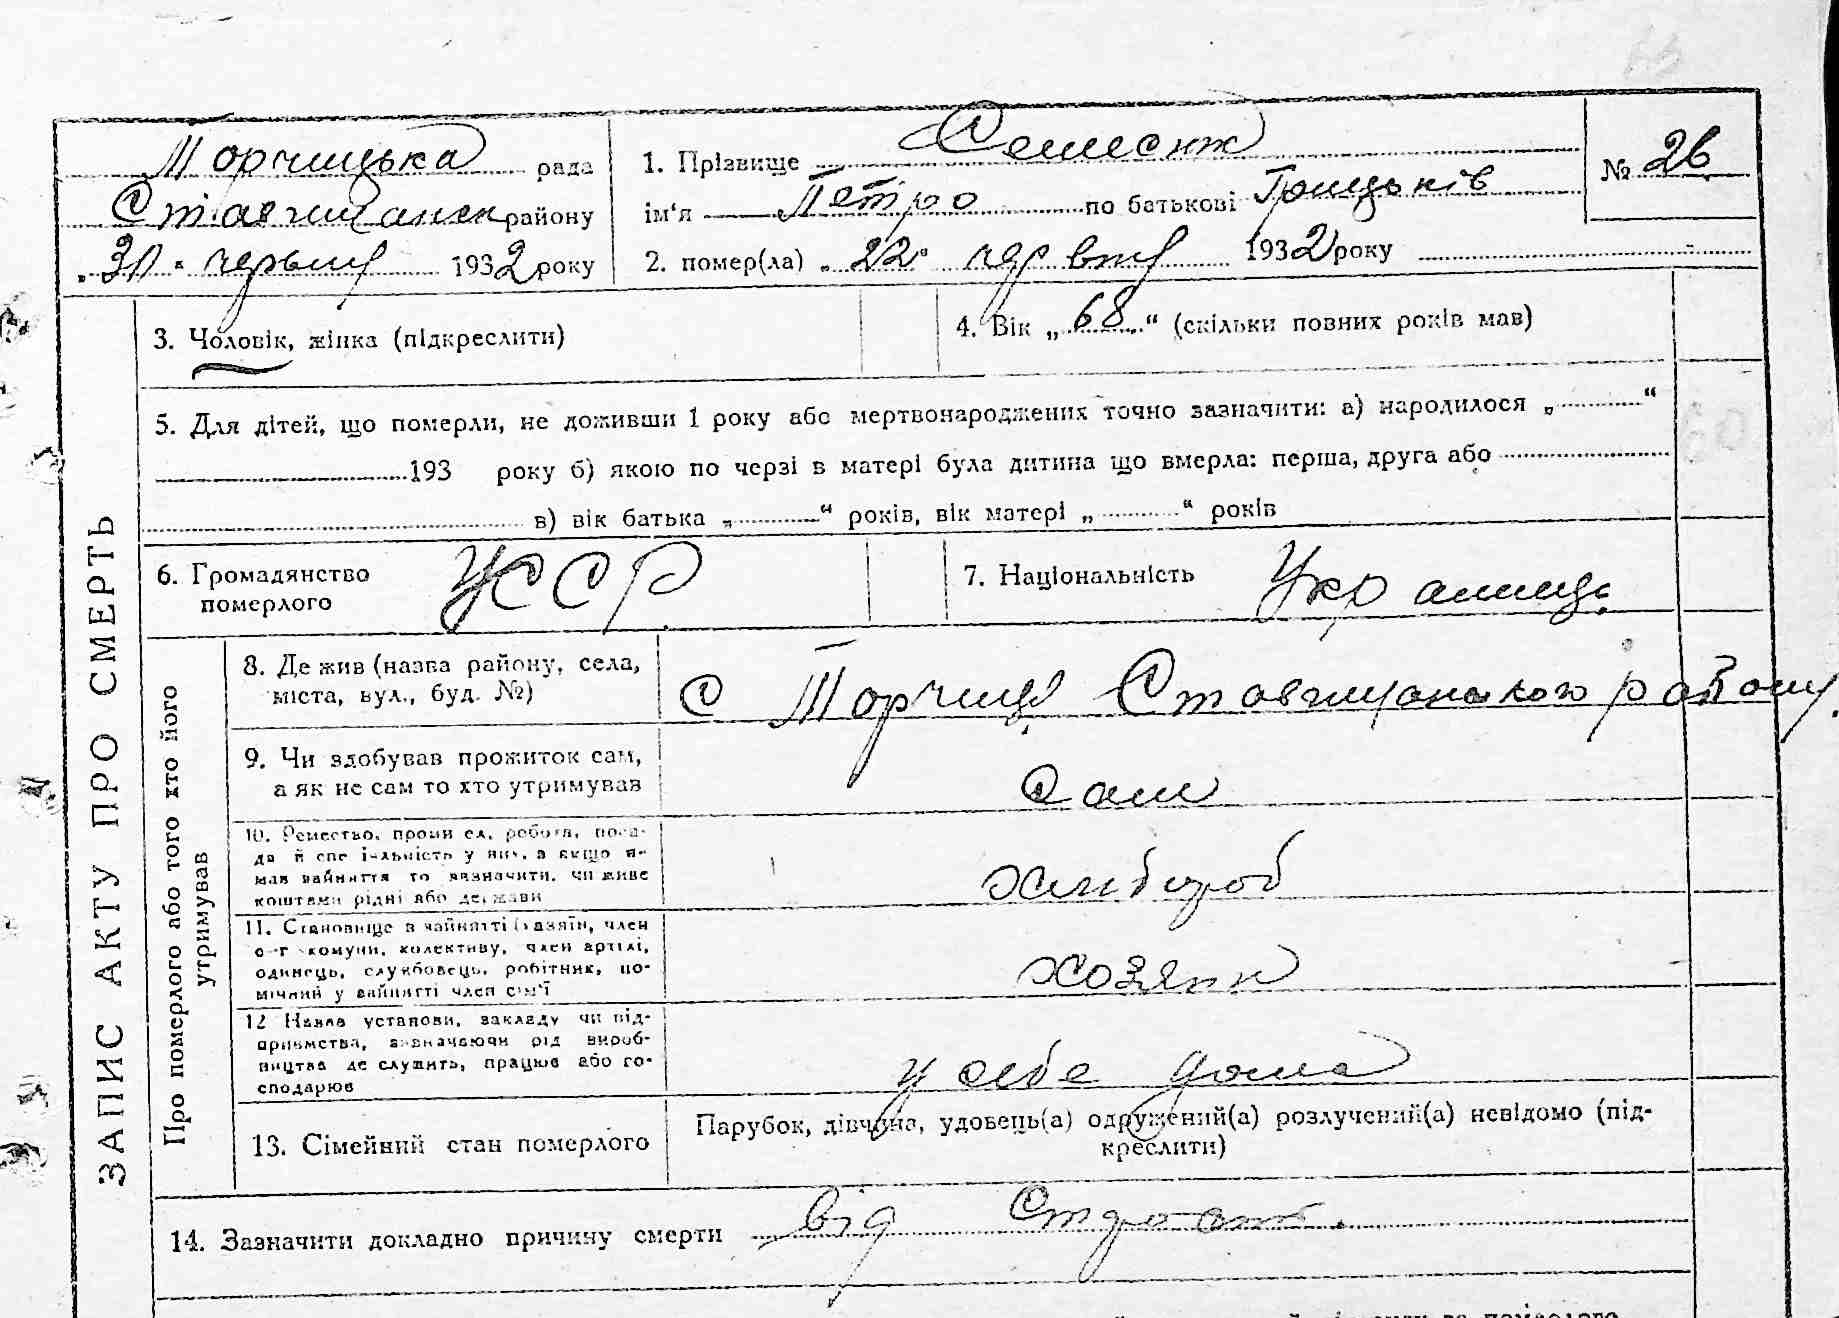 Торчицька рада
Ставищанськ району
"30" червня 1932 року
1. Прізвище
ім'я Петро по батькові Грицьків
2. помер(ла) "22" червня 1932 року
№ 26
3. Чоловік, жінка (підкреслити)
4. Вік „68“ (скільки повних років мав)
5. Для дітей, що померли, не доживши 1 року або мертвонароджених точно зазначити: а) народилося „ “
193 року б) якою по черзі в матері була дитина що вмерла: перша, друга або
в) вік батька „ “ років, вік матері „ “ років
6. Громадянство
померлого
УССР
7. Національність Украинець
ЗАПИС АКТУ ПРО СМЕРТЬ
Про померлого або того хто його
утримував
8. Де жив (назва району, села,
міста, вул., буд. №)
с Торчиця Ставищанського району.
9. Чи здобував прожиток сам,
а як не сам то хто утримував
Сам
10. Ремество, промисел, робота, поса-
да й спеціальність у ній, а якщо не
мав зайняття то зазначити, чи живе
коштами рідні або держави
хлибороб
11. Становище в зайнятті (хазяїн, член
с-г комуни, колективу, член артілі,
одинець, службовець, робітник, по-
мічний у зайнятті член сім'ї
хозяин
12 Назва установи, закладу чи під-
приємства, зазначаючи рід вироб-
ництва де служить, працює або го-
сподарює
у себе дома
13. Сімейний стан померлого
Парубок, дівчина, удовець(а) одружений(а) розлучений(а) невідомо (під-
креслити)
14. Зазначити докладно причину смерти від старости.